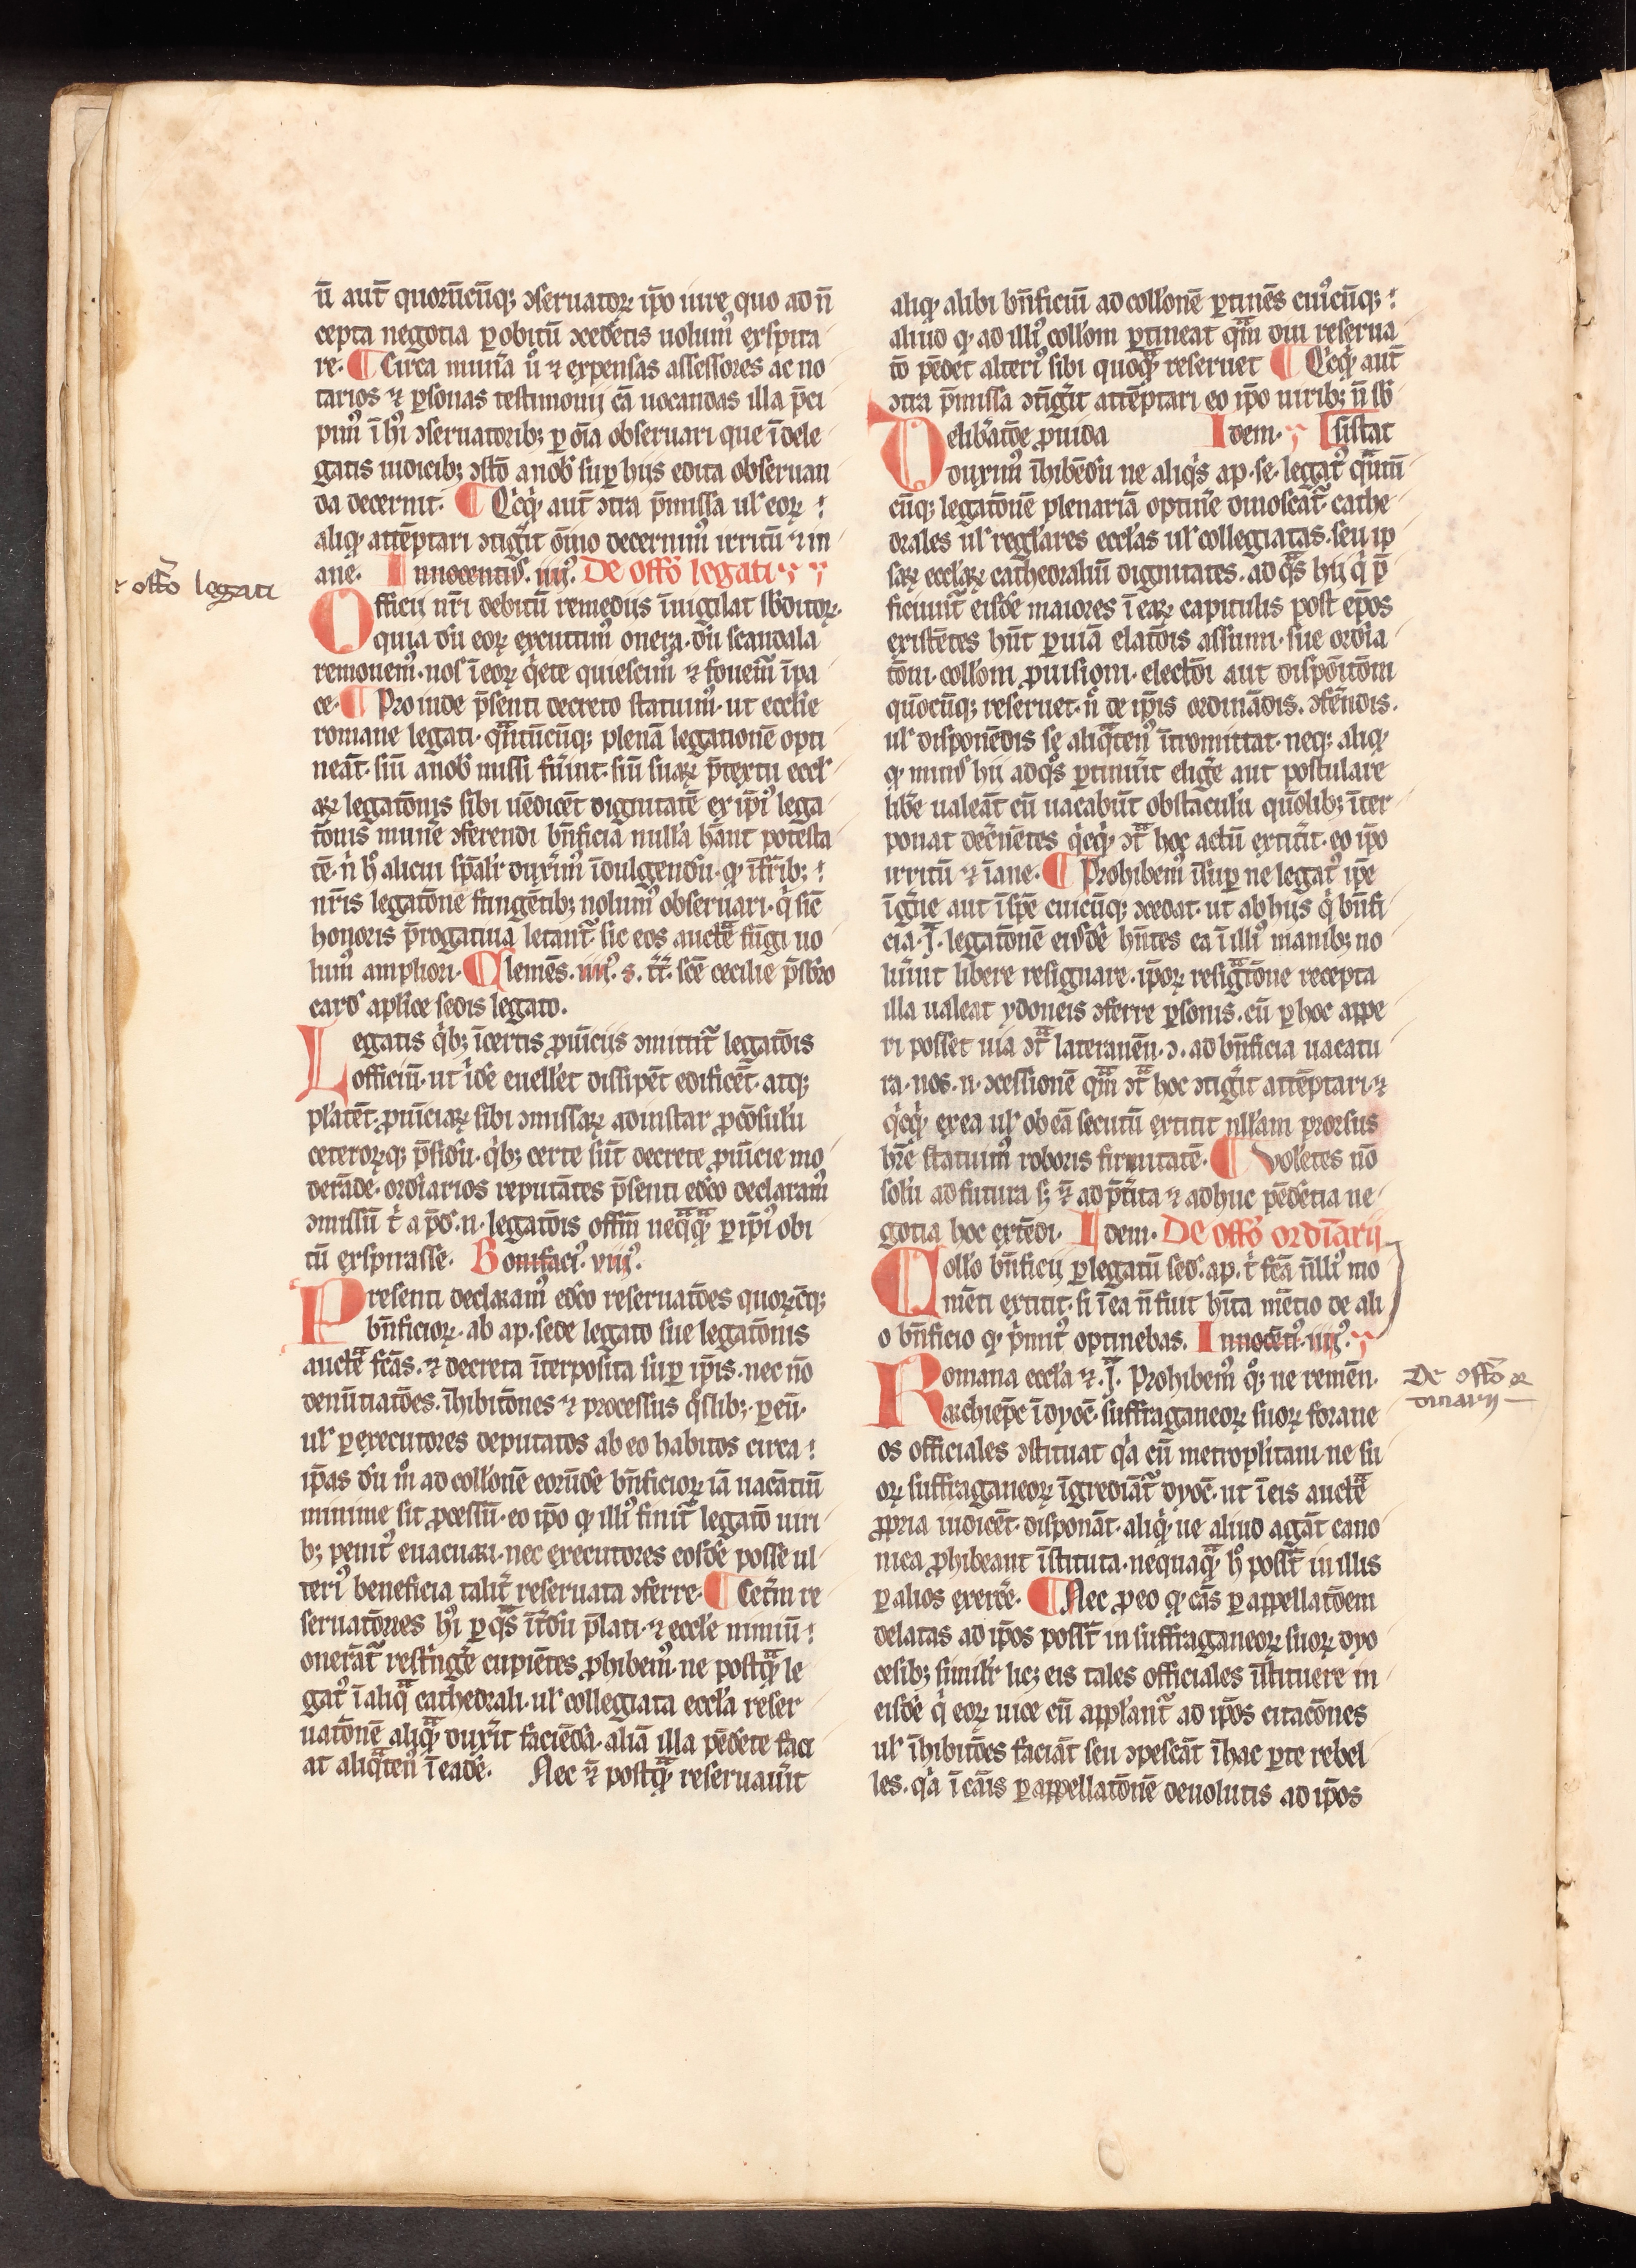 ū aut̄ quorūcūqꝫ ɔseruatoꝝ ip̄o iure quo ad n̄
cepta negotia ꝑ obitū ɔcedētis uolum᷒ exspira
re. ¶ Circa munīa ů ⁊ expensas assessores ac no
tarios ⁊ ꝑsonas testimonij cā uocandas illa p̄ci
pim᷒ ī hı᷒ ɔseruatoribꝫ ꝑ oīa obseruari que ī dele
gatis iudicibꝫ ɔstō a nob̄ suꝑ hiis edita obseruan
da decernit. ¶ Qͥcqͥd aut̄ ɔtra p̄missa ul̓ eoꝝ
aliqͦ attēptari ɔtiḡit ōīno decernim᷒ irritū ⁊ in
ane. Innocentiꝰ. iiijꝰ. De offō legati
⁊ offō legati
Officij nr̄i debitū remediis īuigilat sb̄ditoꝝ.
quia dū eoꝝ excutim᷒ onera. dū scandala
remouem᷒. nos ī eoꝝ qͥete quiescim᷒ ⁊ fouem᷒ ī pa
ce. ¶ Proinde p̄senti decreto statuim᷒. ut eccl̓ie
romane legati. qͣntūcūqꝫ plenā legationē opti
neāt. siū a nob̄ missi fūint. siū suaꝝ p̄textu eccl̓
aꝝ legatōnis sibi uēdicēt dignitatē ex ip̄i᷒ lega
tōnis munē ɔferendi bn̄ficia nulla hānt potesta
tē. nͥ hͦ alicui sp̄alr̄ duxim᷒ īdulgendū. qͦ ī fr̄ibꝫ
nr̄is legatōne fungētibꝫ nolum᷒ obseruari. qͥ sic̄
honoris p̄rogatiua letant̄. sic eos auctͣē fūgi uo
lum᷒ ampliori. Clemēs. iiijꝰ. s. tt̄. scē cecilie p̄sbr̄o
card̓ apl̓ice sedis legato.
Legatis qͥbꝫ ī certis ꝓuīciis ɔmittit̄ legatōis
officiū. ut ī id̄e euell̓et dissipēt edificēt. atqꝫ
pl̓atēt. ꝓuīciaꝝ sibi ɔmissaꝝ adinstar ꝓcōsulū
ceteroꝝqꝫ p̄sidū. qͥbꝫ certe sūt decrete ꝓuīcie mo
derādē. ordīarios reputātes p̄senti edc̄o declaram᷒
ɔmissū tͥ a p̄d̓. n. legatōis offīm neqͣqͣ ꝑ ip̄i᷒ obi
tū exspirasse. Bonifaci᷒. viijꝰ.
Presenti declaram᷒ edc̄o reseruatōes quoꝝcūqꝫ
bn̄ficioꝝ. ab ap. sede legato siue legatōnis
auctͣē fc̄as. ⁊ decreta īterposita suꝑ ip̄is. nec nō
denūtiatōes. īhibitōnes ⁊ processus qͦslibꝫ. ꝑ eū.
ul̓ ꝑ executores deputatos ab eo habitos circa
ip̄as dū mͦ ad coll̓onē eorūdē bn̄ficioꝝ iā uacātiū
minime sit ꝓcessū. eo ip̄o qͦ illi᷒ finit̄ legatō uiri
bꝫ penit᷒ euacuari. nec executores eosdē posse ul
teri᷒ beneficia talit̄ reseruata ɔferre. ¶ Cetīm re
seruatōnes hı᷒ ꝑ qͣs īt̄dū p̄lati. ⁊ eccl̓e nimiū
onerāt̄ restīgē cupiētes ꝓhibem᷒. ne postqͣꝫ le
gat᷒ ī aliqͣ cathedrali. ul̓ collegiata eccl̓a reser
uatōnē aliqͣꝫ duxīt faciēdā. aliā illa pēdēte faci
at aliqͣten᷒ ī eadē. Nec ⁊̄ postqͣꝫ reseruaūit
aliqͦ alibi bn̄ficiū ad coll̓onē ꝑtinēs cui᷒cūqꝫ
aliud qͦ ad illi᷒ coll̓om ꝑtineat qͣm diu reserua
tō pēdet alteri᷒ sibi quoqͦ reseruet ¶ Qͥcqͥd aut̄
ɔtra p̄missa ɔtiḡit attēptari eo ip̄o uiribꝫ n̄ sb̄
sistat
Delib̄atōe ꝓuida Idem.
duxim᷒ īhibēdū ne aliqͥs ap. se. legat᷒ qͣntū
cūqꝫ legatōnē plenariā optinē dinoscāt̄. cathe
drales ul̓ reglares eccl̓as ul̓ collegiatas. seu ip
saꝝ eccl̓aꝝ cathedraliū dignitates. ad qͣs hij qͥ p̄
ficiunt̄ eisdē maiores ī eaꝝ capitulis post ep̄os
existētes hn̄t ꝑ uiā elatōis assumi. siue ordīa
tōni. coll̓oni ꝓuisioni. electōi aut dispōitōni
qūocūqꝫ reseruet. nͨ de ip̄is ordinādis. ɔfēndis.
ul̓ disponēdis se aliqͣten᷒ ītromittat. neqꝫ aliqͦ
qͦ minꝰ hii ad qͦs ꝑtinuīt eligē aut postulare
libē ualeāt cū uacabūt obstaculū qūolibꝫ īter
ponat decn̄entes qͥcqͥd ɔtͣ hoc actū extitīt. eo ip̄o
irritū ⁊ īane. ¶ Prohibem᷒ īsuꝑ ne legat᷒ ip̄e
īgn̄e aut īsp̄e cuicūqꝫ ɔcedat. ut ab hiis qͥ bn̄fi
cia. J. legatōnē eiꝰdē hn̄tes ea ī illi᷒ manibꝫ no
lūint libere resignare. ip̄oꝝ resigͣtōne recepta
illa ualeat ydoneis ɔferre ꝑsonis. cū ꝑ hoc appe
ri posset uia ɔtͣ lateranēn. ɔ. ad bn̄ficia uacatu
ra. nos. n. ɔcessionē qͣm ɔtͣ hoc ɔtiḡit attēptari. ⁊
qͥcqͥd ex ea ul̓ ob eā secutū extitit nll̓am prorsus
hr̄e statuim᷒ roboris firmitatē. ¶ Vol̓etes nō
solū ad futura sꝫ ⁊̄ ad p̄tīta ⁊ adhuc pēdētia ne
gotia hoc extēdi. Idem. De offō ordīarij
Coll̓o bn̄ficij ꝑ legatū sed̓. ap. tͥ fc̄a n̄lli᷒ mo
mēti extitit. si ī ea n̄ fuit hīta mētio de ali
o bn̄ficio qͦ p̄mit᷒ optinebas. Innocēti᷒. iiijꝰ.
Romana eccl̓a ⁊. J. Prohibem᷒ qͦꝫ ne remēn.
De offō or
dinarij
archiep̄c ī dyoc̄. suffraganeoꝝ suoꝝ forane
os officiales ɔstituat qͥa cū metropl̓itani ne su
oꝝ suffraganeoꝝ īgrediāt᷒ dyoc̄. ut ī eis auctͣē
ꝓpria iudicēt. disponāt. aliqͥd. ne aliud agāt cano
nica ꝓhibeant īstituta. nequaqͣꝫ hͦ poss̄t in illis
ꝑ alios exerc̄e. ¶ Nec ꝓ eo qͦ cās ꝑ appellatōem
delatas ad ip̄os poss̄t in suffraganeoꝝ suoꝝ dyo
cesibꝫ simil̓r licꝫ eis tales officiales īstituere in
eisdē qͥ eoꝝ uice cū appl̓ant̄ ad ip̄os citacōnes
ul̓ īhibitōes faciāt seu ɔpescāt ī hac ꝑte rebel
les. qͥa ī cāis ꝑ appellatōnē deuolutis ad ip̄os